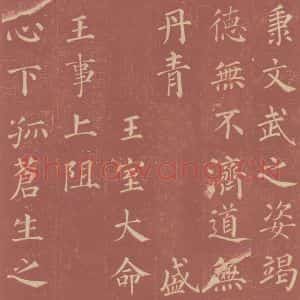 秉文武之姿竭
德無不濟道無
丹青 盛
王室大命
王事上阻
心下孤蒼生之